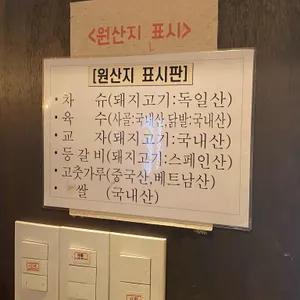 <원산지 표시>
[원산지 표시판]
・차 슈(돼지고기:독일산)
・육 수(사골:국내산,닭발:국내산)
・교 자(돼지고기:국내산)
・등갈비(돼지고기:스페인산)
・고춧가루(중국산,베트남산)
・쌀 (국내산)